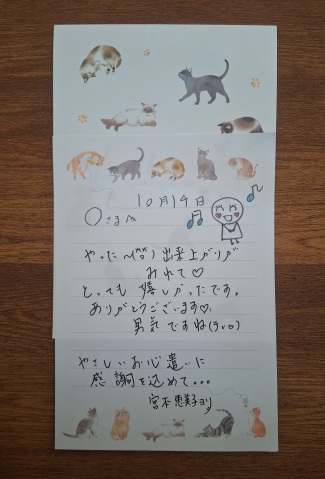 10月14日
○さまへ
やった〜(^o^) 出来上がりが
みれて♡
とっても嬉しかったです。
ありがとうございます♡
男気ですね(える)
やさしいお心遣いに
感謝を込めて...
宮本恵美子ヨリ